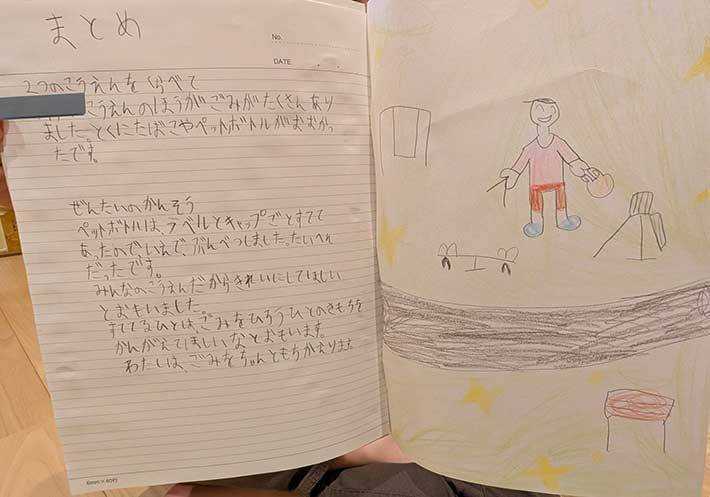 まとめ
No.
DATE
2つのこうえんをくらべて
こうえんのほうがごみがたくさんあり
ました。とくにたばこやペットボトルがおおかっ
たです。
ぜんたいのかんそう
ペットボトルは、ラベルとキャップごとすてて
あったのでいえで、ぶんべつしました。たいへん
だったです。
みんなのこうえんだからきれいにしてほしい
とおもいました
すててるひとは、ごみをひろうひとのきもちを
かんがえてほしいなとおもいます。
わたしは、ごみをちゃんともちかえります
6mm×40行